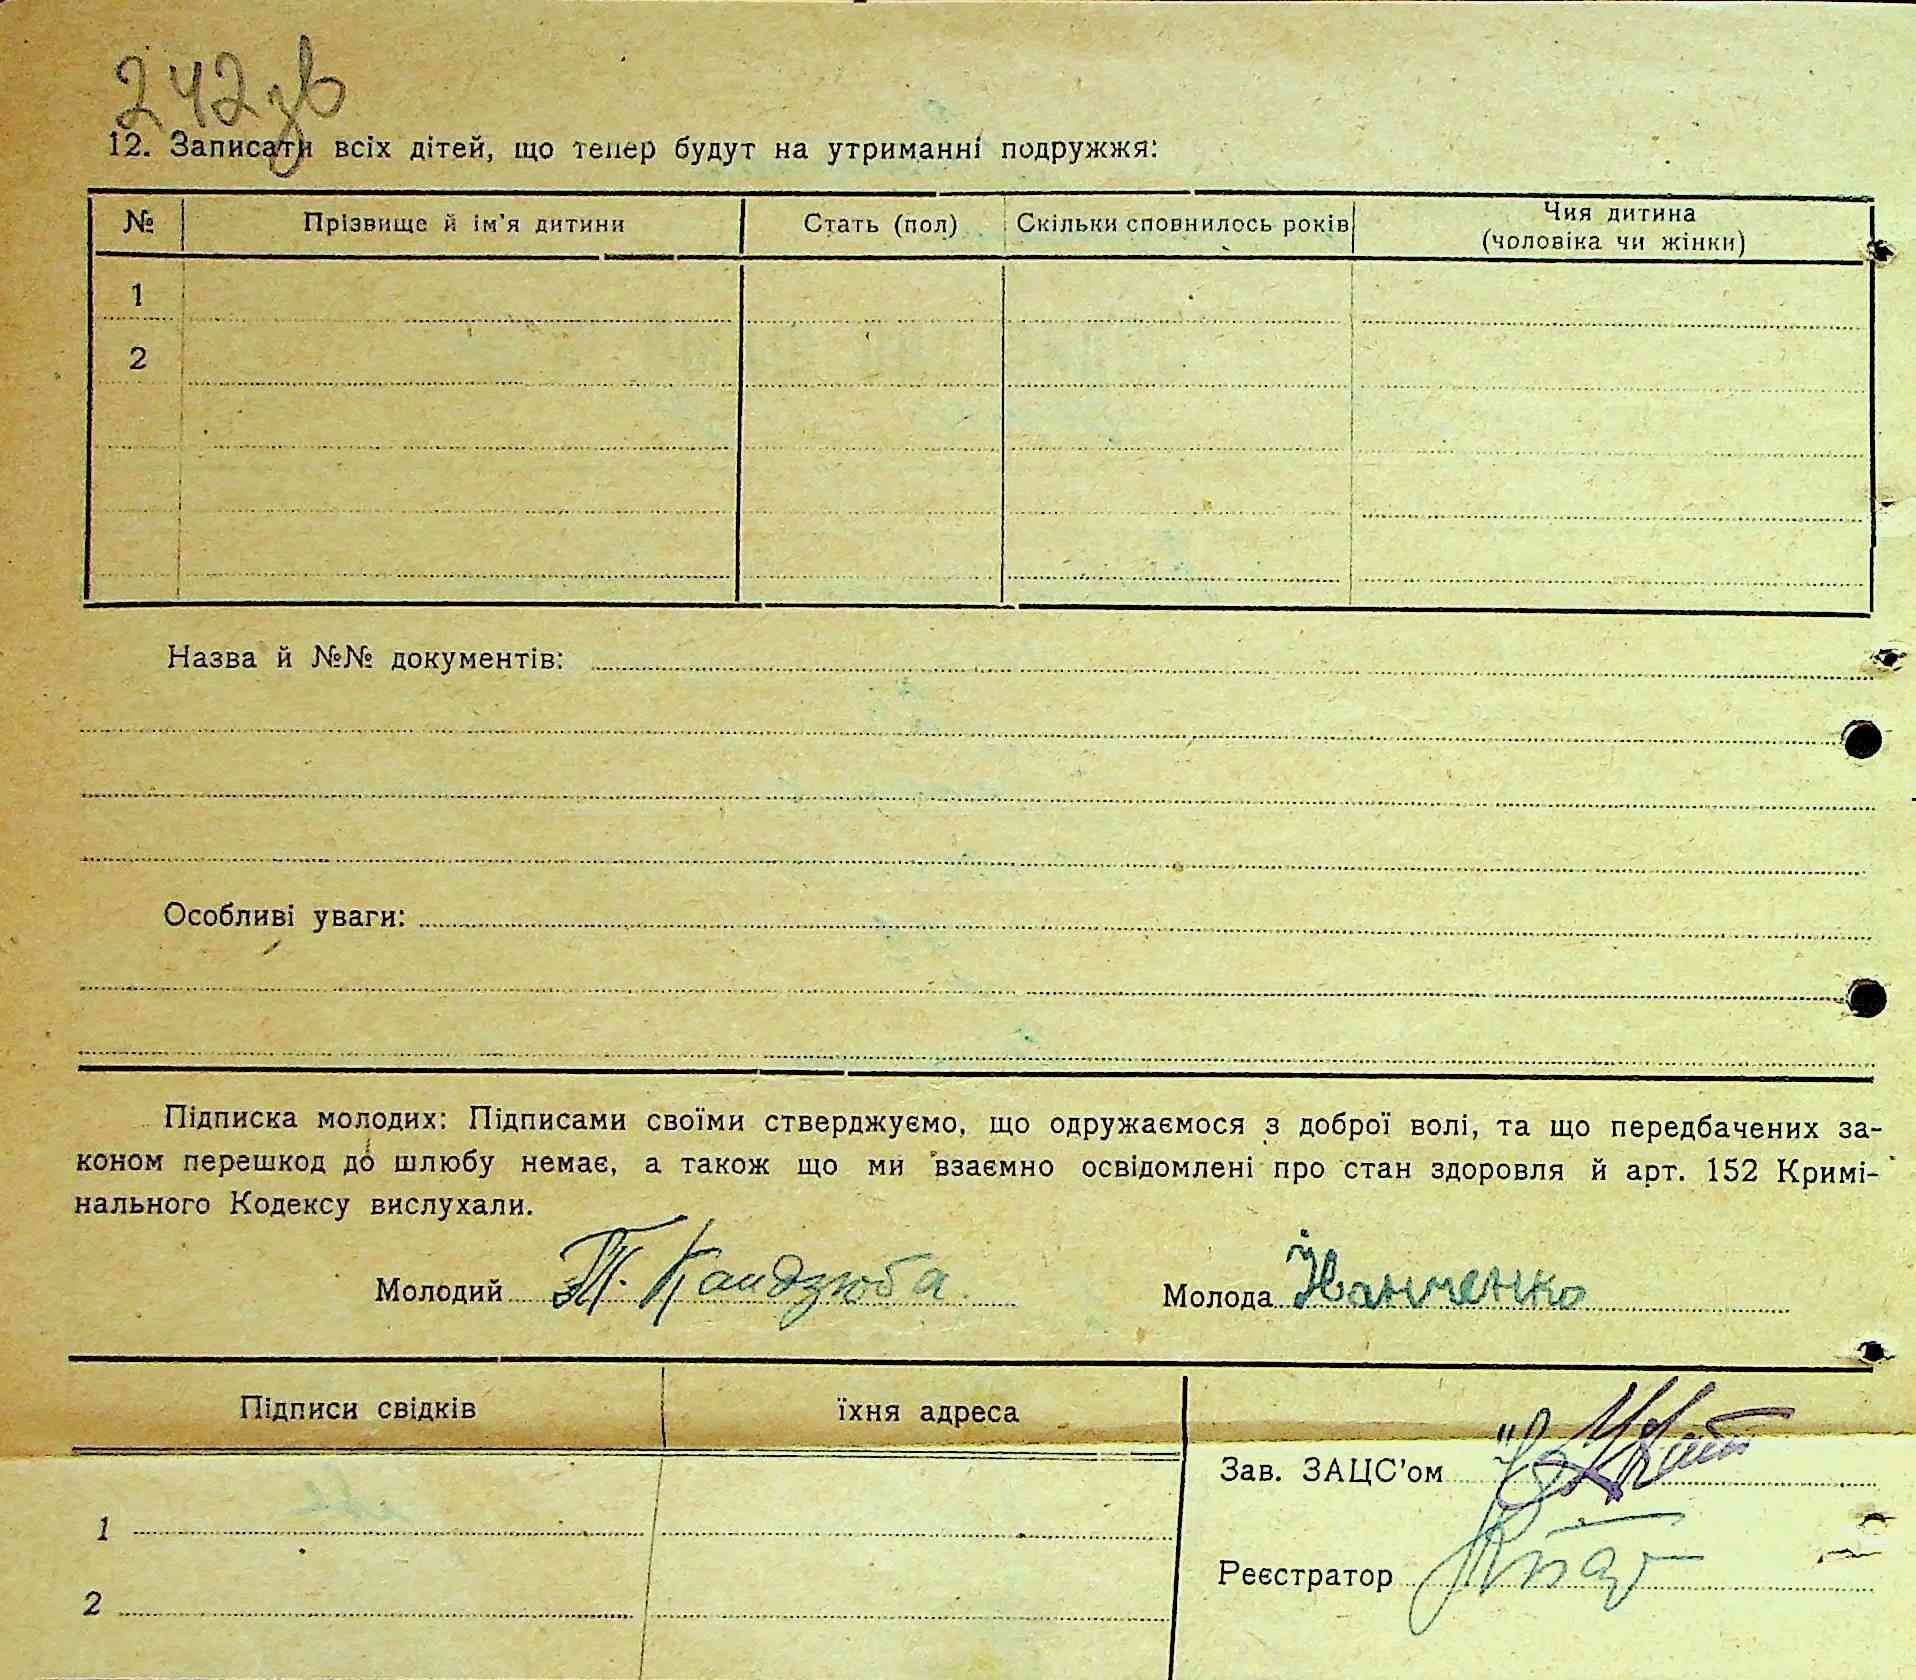 242зв
12. Записати всіх дітей, що тепер будут на утриманні подружжя:
№ Прізвище й ім'я дитини Стать (пол) Скільки сповнилось років Чия дитина
(чоловіка чи жінки)
1
2
Назва й №№ документів:
Особливі уваги:
Підписка молодих: Підписами своїми стверджуємо, що одружаємося з доброї волі, та що передбачених за-
коном перешкод до шлюбу немає, а також що ми взаємно освідомлені про стан здоровля й арт. 152 Кримі-
нального Кодексу вислухали.
Молодий Кандзюба Молода Іванченко
Підписи свідків їхня адреса
Зав. ЗАЦС'ом
1
Реєстратор
2